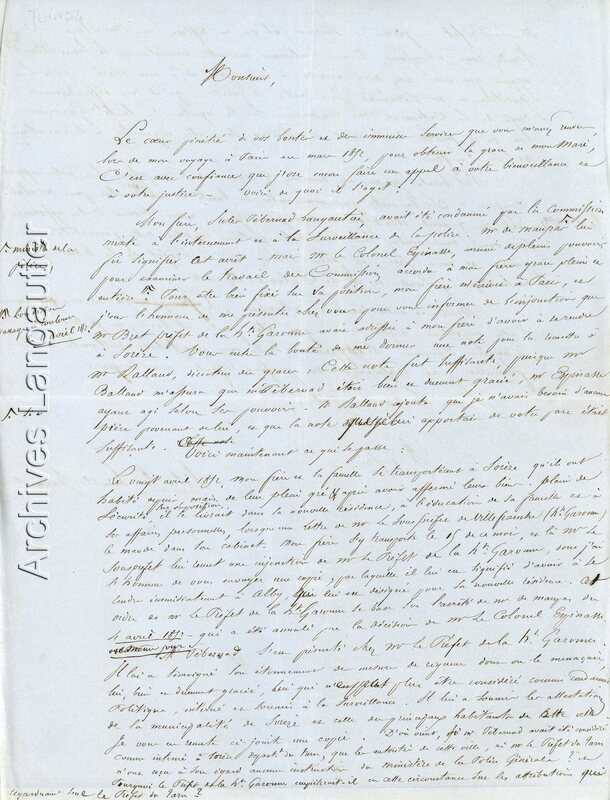 Monsieur,
Le cœur pénétré de vos bontés et des immenses services que vous m'avez rendus
lors de mon voyage à Paris en mars 1852 pour obtenir la grace de mon Mari,
C'est avec confiance que j'ose encore faire un appel à votre bienveillance et
à votre justice - voici de quoi il s'agit:
Mon frère, Jules Pébernad Langautier avait été condamné par la Commission
mixte à l'internement et à la Surveillance de la police. mr de maupas lui
fit signifier cet arrêt - mais mr le Colonel Espinasse, muni de pleins pouvoirs
pour examiner le travail des Commissions accorda à mon frère grace pleine et
entière. Pour être bien fixé sur sa position, mon frère à Paris, et
j'eus l'honneur de me présenter chez vous pour vous informer de l'injonction que
mr Bret préfet de la hte Garonne avait adressée à mon frère d'avoir à se rendre
à Sorèze. Vous eutes la bonté de me donner une note pour la remettre à
mr Ballaud, directeur des graces: Cette note fut suffisante, puisque mr
Ballaud m'assura que mr Pébernad était bien et dument gracié, mr Espinasse
ayant agi selon ses pouvoirs - mr Ballaud ajouta que je n'avais besoin d'aucune
pièce provenant de lui, et que la note que je lui apportais de votre part était
suffisante. Cette note Voici maintenant ce qui se passe:
Le vingt avril 1852 mon frère et sa famille se transportèrent à Sorèze qu'ils ont
habité depuis, mais de leur plein gré & après avoir affermé leur bien; plein de
Sécurité, il se livrait dans sa nouvelle résidence, à l'éducation de sa famille et à
sa position,
ses affaires personnelles, lorsque une lettre de mr le Sous préfet de Villefranche (hte Garonne)
le mande dans son cabinet. Mon frère s'y transporte le 15 de ce mois, et là mr le
Souspréfet lui remet une injonction de mr le Préfet de la hte Garonne, dont j'ai
l'honneur de vous envoyer une copie, par laquelle il lui est signifié d'avoir à se
rendre immédiatement à Alby, qui lui est désigné pour sa nouvelle résidence. Cet
ordre de mr le Préfet de la hte Garonne se base sur l'arrêté de mr de maupas, du
4 avril 1852 - qui a été annulé par la décision de mr le Colonel Espinasse
mr Pébernad s'est présenté chez mr le Préfet de la hte Garonne
Il lui a témoigné son étonnement des mesures de rigueur dont on le menaçait,
lui, bien et dument gracié, lui qui plus être considéré comme Condamné
Politique, interné et soumis à la Surveillance. Il lui a soumis les attestations
de la municipalité de Sorèze et celle des principaux habitants de cette ville
Je vous en remets ci-joint une copie. D'où vient, si mr Pébernad avait été considéré
comme interné à Sorèze départt du tarn, que les autorités de cette ville, ni mr le Préfet du Tarn
n'ont reçu à son égard aucune instruction du ministère de la Police Générale? et
Pourquoi le Préfet de la hte Garonne empièterait-il en cette circonstance sur les attributions qui
regardent seul le Préfet du Tarn?
Archives Langautier